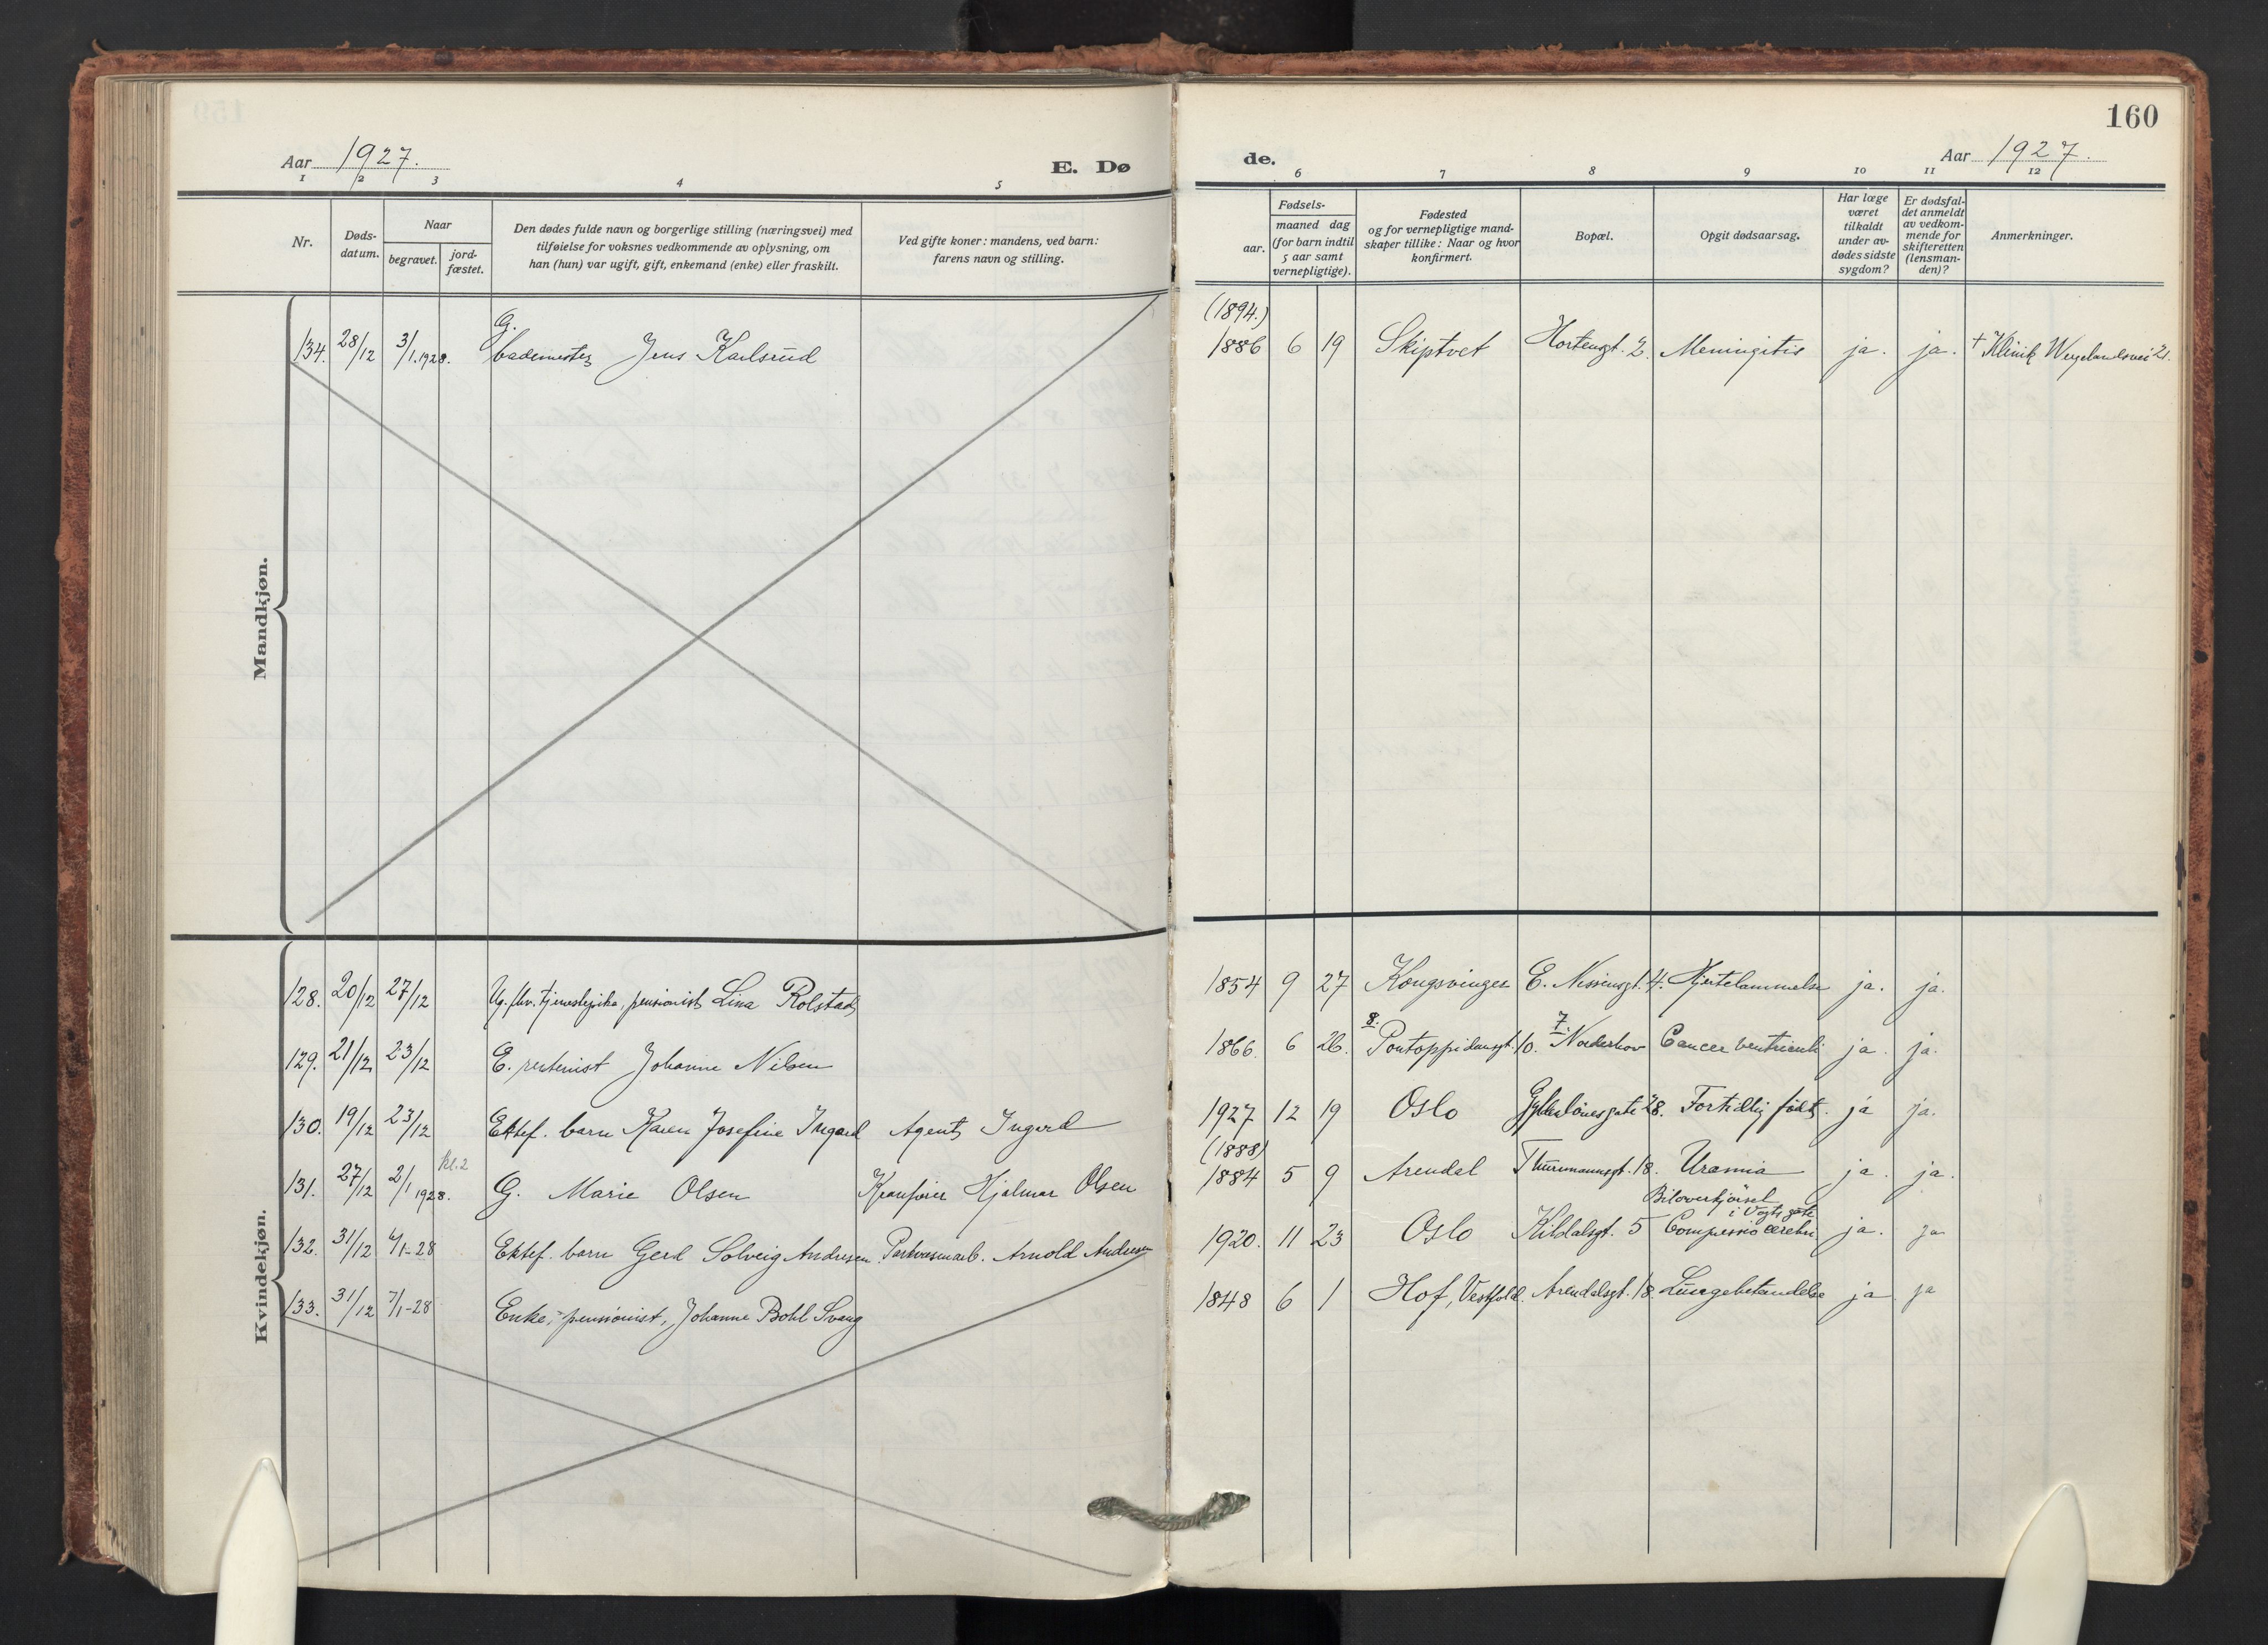 160
Aar 1927.
E. Dø
de.
Aar 1927.
1 2 3 4 5
6 7 8 9 10 11 12
Nr.
Døds-
datum.
Naar
begravet.
jord-
fæstet.
Den dødes fulde navn og borgerlige stilling (næringsvei) med
tilføielse for voksnes vedkommende av oplysning, om
han (hun) var ugift, gift, enkemand (enke) eller fraskilt.
Ved gifte koner: mandens, ved barn:
farens navn og stilling.
Fødsels-
aar.
maaned dag
(for barn indtil
5 aar samt
vernepligtige).
Fødested
og for vernepligtige mand-
skaper tillike: Naar og hvor
konfirmert.
Bopæl.
Opgit dødsaarsag.
Har læge
været
tilkaldt
under av-
dødes sidste
sygdom?
Er dødsfal-
det anmeldt
av vedkom-
mende for
skifteretten
(lensman-
den)?
Anmerkninger.
Mandkjøn.
G. (1894.)
134. 28/12 3/1.1928. bademester Jens Karlsrud 1886 6 19 Skiptvet Hortensgt. 2. Meningitis ja. ja. + Klinik Wergelandsvei 21.
Kvindekjøn.
128. 20/12 27/12 Ug. fhv. tjenestepike, pensionist Lina Rolstad 1854 9 27 Kongsvinger E. Nissensgt. 4. Hjertelammelse ja. ja.
8. 7.
129. 21/12 23/12 E. rentenist Johanne Nilsen 1866. 6 26. Pontoppidansgt. 10. Norderhov Cancer ventriculi ja. ja.
130. 19/12 23/12 Ektef. barn Karen Josefine Ingard Agent Ingerd 1927 12 19 Oslo Gyldenløvesgate 28. Fortidlig født. ja ja.
kl. 2 (1888)
131. 27/12 2/1 1928. G. Marie Olsen Kranfører Hjalmar Olsen 1884 5 9 Arendal Thurmannsgt. 18. Uræmia ja. ja.
Biloverkjørsel
i Vogts gate
132. 31/12 4/1-28 Ektef. barn Gerd Solveig Andresen Parkvæsenarb. Arnold Andresen 1920. 11 23 Oslo Kildalsgt. 5 Compressio cerebri ja. ja
133. 31/12 7/1-28 Enke, pensionist, Johanne Bohl Svang 1848 6 1 Hof, Vestfold. Arendalsgt. 18. Lungebetændelse ja ja